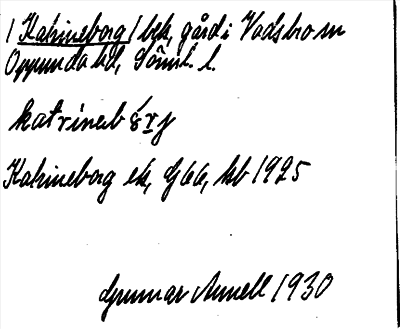 / Katrineborg / bek, gård i Vadsbro sn
Oppunda hd, Söml. l.
katrineb
Katrineborg ek, G66, kb 1925
Gunnar Arnell 1930